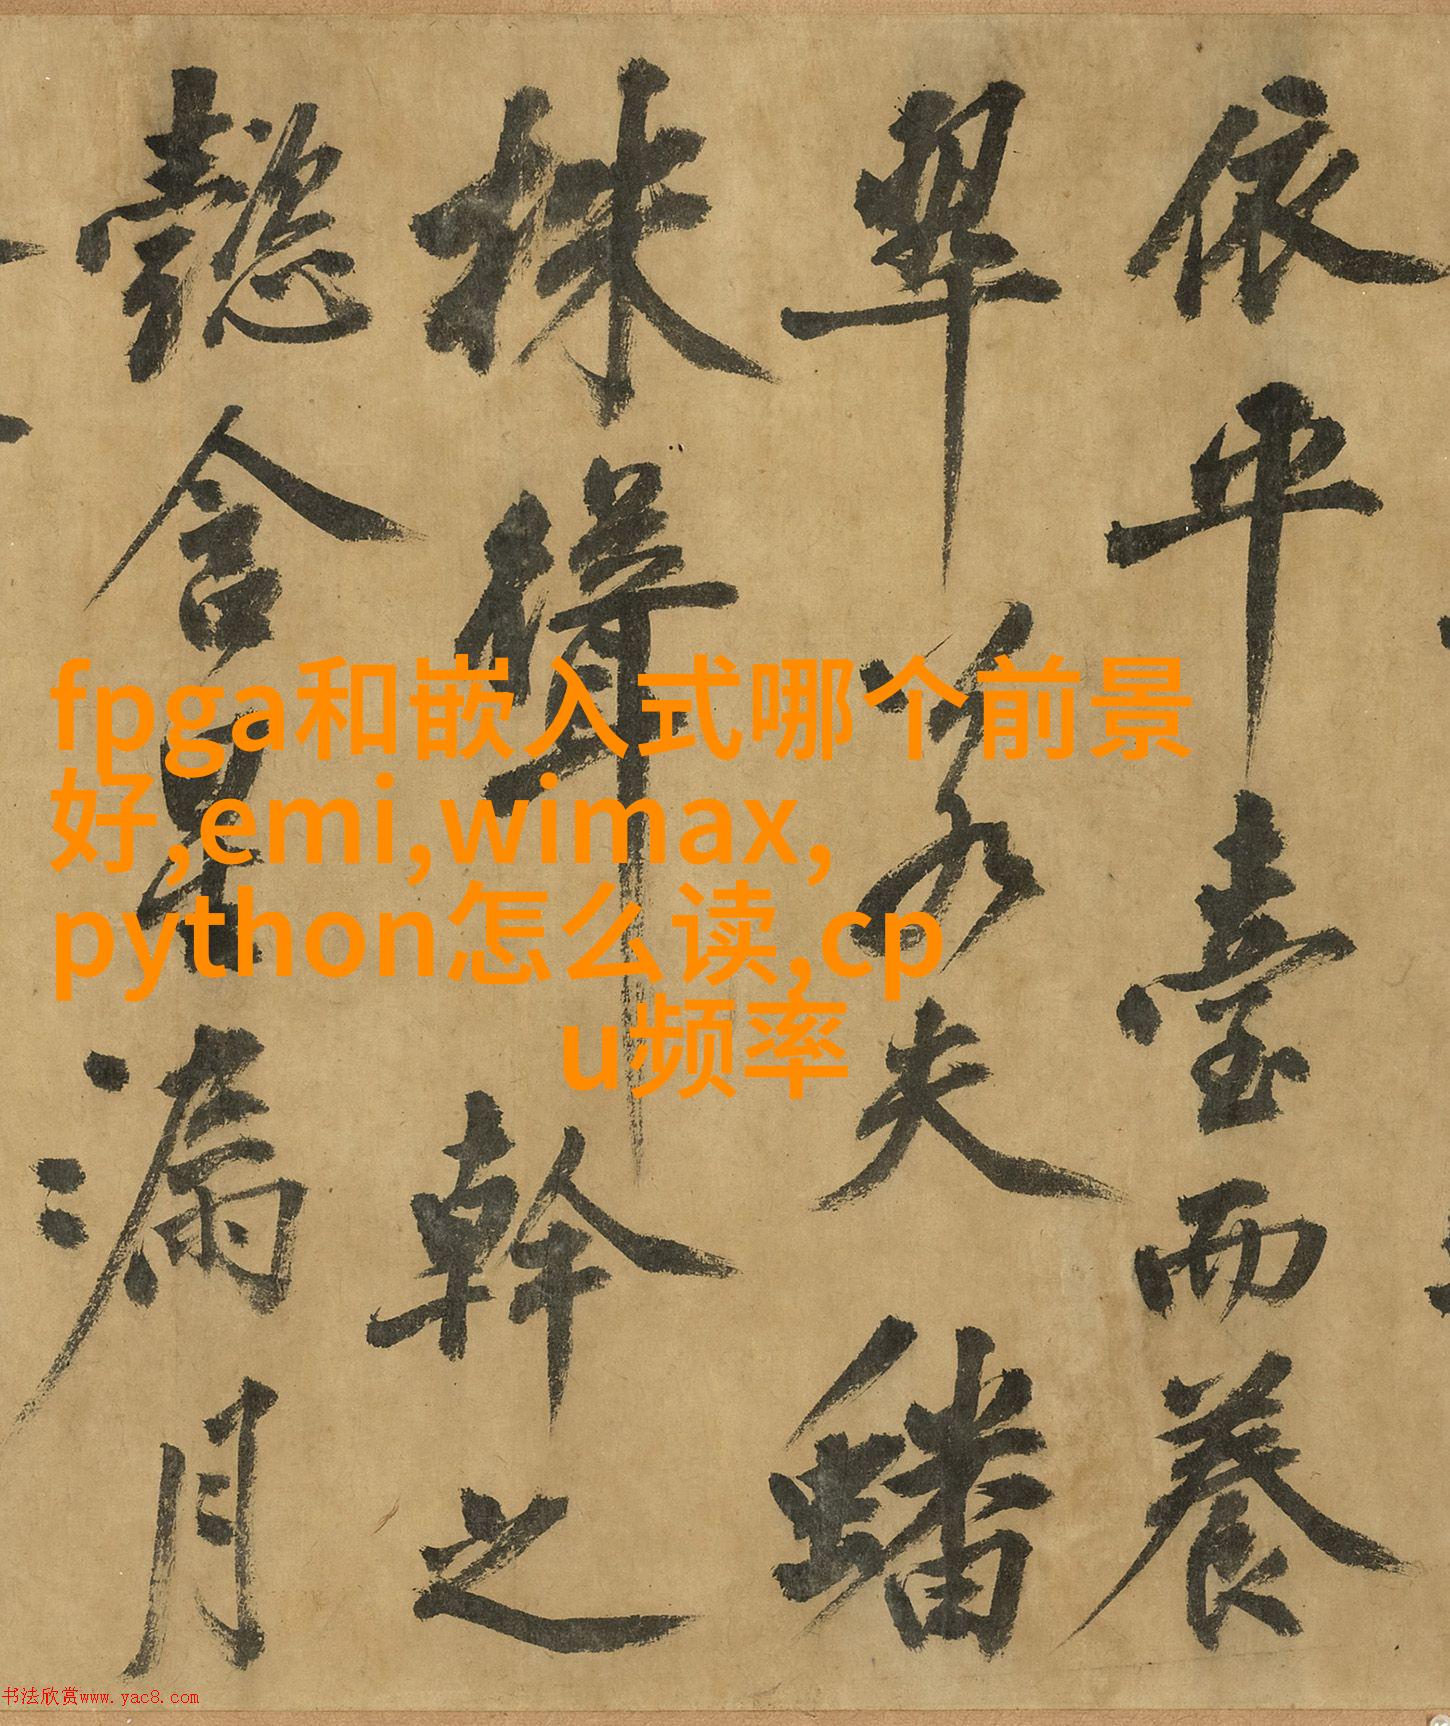 依平臺而養
翠若夫蟠
株聳幹之
懿含星漏月
fpga和嵌入式哪个前景
好,emi,wimax,
python怎么读,cp
u频率
书法欣赏www.yac8.com